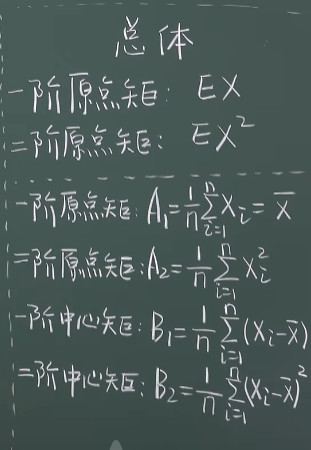 总体
一阶原点矩: EX
二阶原点矩: EX²
一阶原点矩: A₁=1/n ∑ᵢ₌₁ⁿ Xᵢ= X̄
二阶原点矩: A₂=1/n ∑ᵢ₌₁ⁿ Xᵢ²
一阶中心矩: B₁=1/n ∑ᵢ₌₁ⁿ (Xᵢ-X̄)
二阶中心矩: B₂=1/n ∑ᵢ₌₁ⁿ (Xᵢ-X̄)²